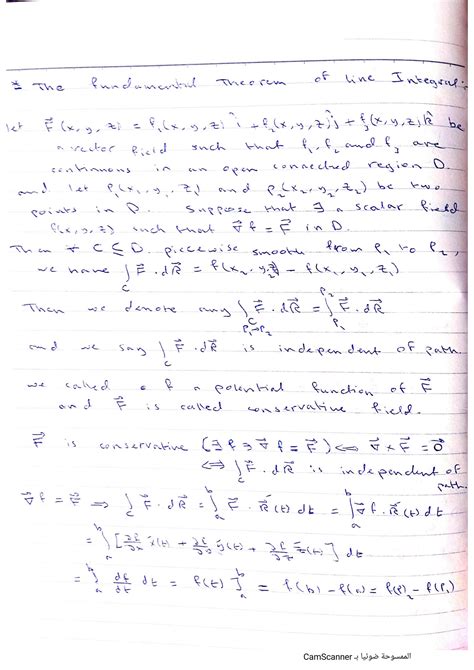 * The Fundamental Theorem of Line Integral:
let F⃗(x, y, z) = f₁(x, y, z) î + f₂(x, y, z) ĵ + f₃(x, y, z) k̂ be
a vector field such that f₁, f₂ and f₃ are
continuous in an open connected region D.
and let P₁(x₁, y₁, z₁) and P₂(x₂, y₂, z₂) be two
points in D. Suppose that ∃ a scalar field
f(x, y, z) such that ∇⃗f = F⃗ in D.
Then ∀ C ⊆ D piecewise smooth from P₁ to P₂,
we have ∫_C F⃗ . dR⃗ = f(x₂, y₂, z₂) - f(x₁, y₁, z₁)
Then we denote any ∫_{C P₁→P₂} F⃗ . dR⃗ = ∫_{P₁}^{P₂} F⃗ . dR⃗
and we say ∫_C F⃗ . dR⃗ is independent of path.
we called f a potential function of F⃗
and F⃗ is called conservative field.
F⃗ is conservative (∃ f ∋ ∇⃗f = F⃗) ⟺ ∇⃗ × F⃗ = 0⃗
⟺ ∫_C F⃗ . dR⃗ is independent of
path.
∇⃗f = F⃗ ⟹ ∫_C F⃗ . dR⃗ = ∫_a^b F⃗ . R⃗'(t) dt = ∫_a^b ∇⃗f . R⃗'(t) dt
= ∫_a^b [∂f/∂x x'(t) + ∂f/∂y y'(t) + ∂f/∂z z'(t)] dt
= ∫_a^b df/dt dt = f(t) ]_a^b = f(b) - f(a) = f(P₂) - f(P₁)
الممسوحة ضوئيا بـ CamScanner